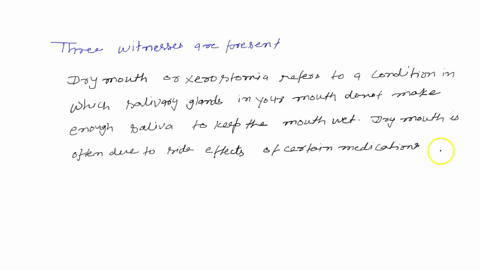 Three witnesses are present
Dry mouth or xerostomia refers to a condition in
which salivary glands in your mouth donot make
enough saliva to keep the mouth wet. Dry mouth is
often due to side effects of certain medications.